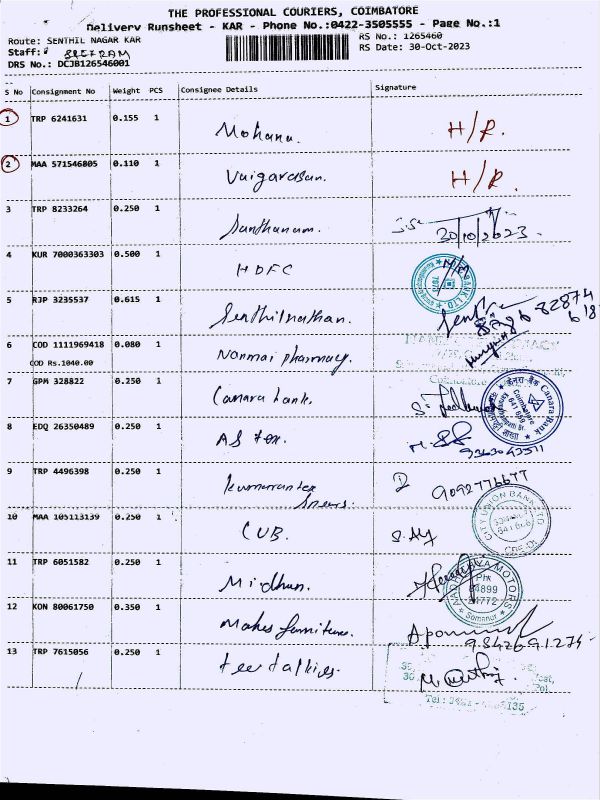 THE PROFESSIONAL COURIERS, COIMBATORE
Delivery Runsheet - KAR - Phone No.:0422-3505555 - Page No.:1
Route: SENTHIL NAGAR KAR
RS No.: 1265460
Staff: SREERAM
RS Date: 30-Oct-2023
DRS No.: DCJB126546001
S No Consignment No Weight PCS Consignee Details Signature
1 TRP 6241631 0.155 1 Mohana. H/R.
2 MAA 571546805 0.110 1 Vaigarasan. H/R.
3 TRP 8233264 0.250 1 Santhanam.
30/10/2023.
4 KUR 7000363303 0.500 1 HDFC
5 RJP 3235537 0.615 1 Senthilnathan.
6 COD 1111969418 0.080 1 Nanmai pharmacy.
COD Rs.1040.00
7 GPM 328822 0.250 1 Canara bank.
Canara Bank
Coimbatore
8 EDQ 26350489 0.250 1 AS tex.
9363043511
9 TRP 4496398 0.250 1
9092776677
10 MAA 105113139 0.250 1 CUB.
CITY UNION BANK LTD
11 TRP 6051582 0.250 1 Midhun.
MOTORS
PH:
84899
24772
Somanur
12 KON 80061750 0.350 1 Mahes furniture.
9.8426.91.274-
13 TRP 7615056 0.250 1 tee talkies.